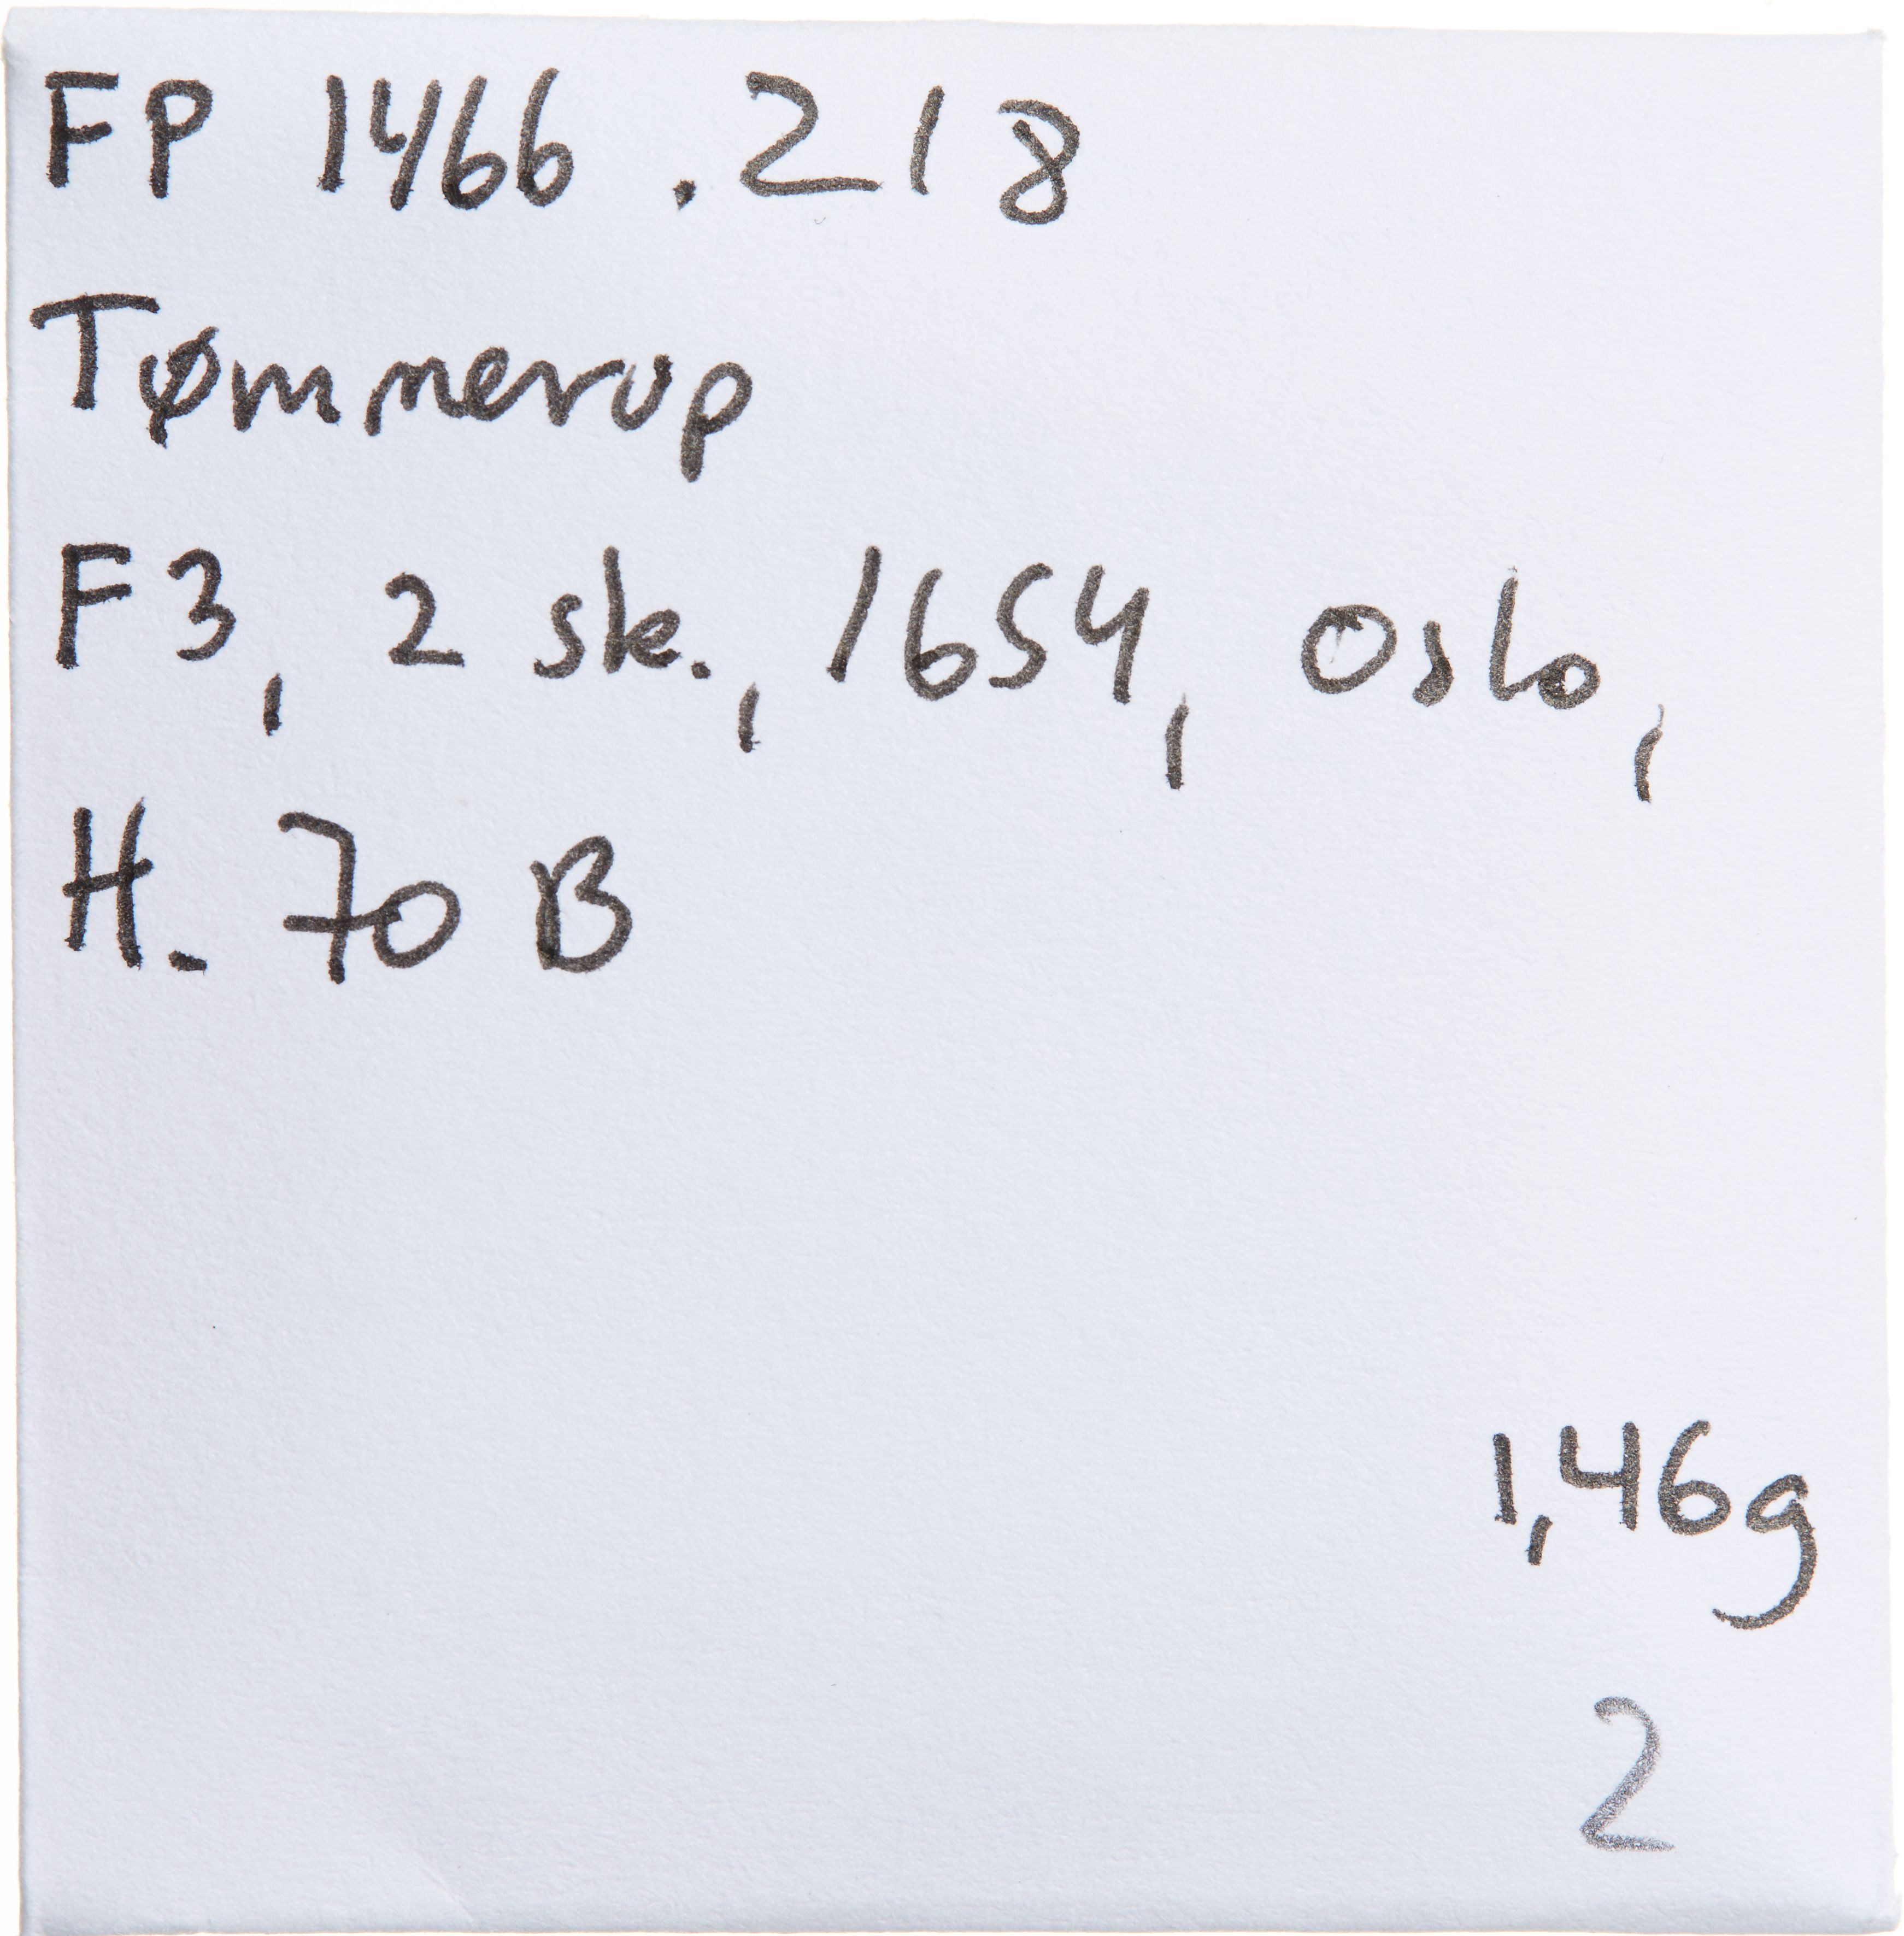 FP 1466.218
Tømmerup
F3, 2 sk., 1654, Oslo,
H. 70 B
1,46g
2